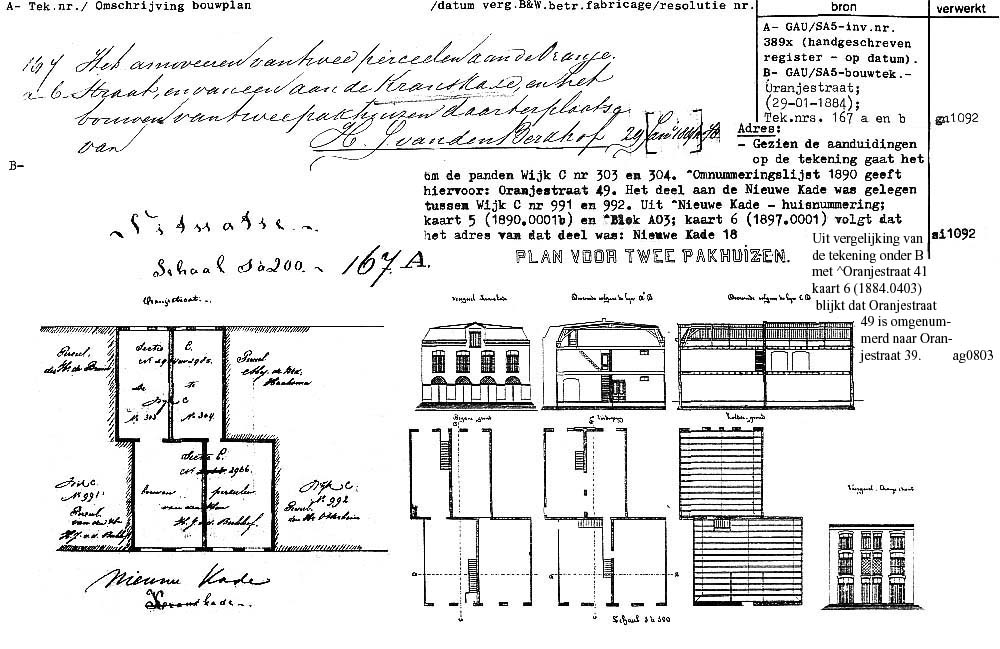 A- Tek.nr./ Omschrijving bouwplan /datum verg.B&W.betr.fabricage/resolutie nr.
bron
verwerkt
167 Het amoveeren van twee perceelen aan de Oranje-
a b Straat, en van een aan de Kranskade, en het
bouwen van twee pakhuizen daarterplaatse
van H. J. van den Berkhof 29 Jan 1884
A- GAU/SA5-inv.nr.
389x (handgeschreven
register - op datum).
B- GAU/SA5-bouwtek.-
Oranjestraat;
(29-01-1884);
Tek.nrs. 167 a en b
gn1092
Adres:
- Gezien de aanduidingen
op de tekening gaat het
B-
om de panden Wijk C nr 303 en 304. ^Omnummeringslijst 1890 geeft
hiervoor: Oranjestraat 49. Het deel aan de Nieuwe Kade was gelegen
tussen Wijk C nr 991 en 992. Uit ^Nieuwe Kade - huisnummering;
kaart 5 (1890.0001b) en ^Blok A03; kaart 6 (1897.0001) volgt dat
het adres van dat deel was: Nieuwe Kade 18
si1092
Uit vergelijking van
de tekening onder B
met ^Oranjestraat 41
kaart 6 (1884.0403)
blijkt dat Oranjestraat
49 is omgenum-
merd naar Oran-
jestraat 39. ag0803
Situatie.
Schaal 1 à 200. 167 A.
PLAN VOOR TWEE PAKHUIZEN.
Oranjestraat.
Sectie C.
Wijk C
N. 303 N. 304
Perceel
Sectie C.
2966.
bouwen perceelen
H. J. v. d. Berkhof.
Wijk C.
N. 991
Perceel
van den Hr
H. J. v. d. Berkhof
Wijk C.
N. 992
Perceel
Nieuwe Kade
Kranskade
Begane grond
Zolder grond
Voorgevel Oranjestraat
Schaal 1 à 200